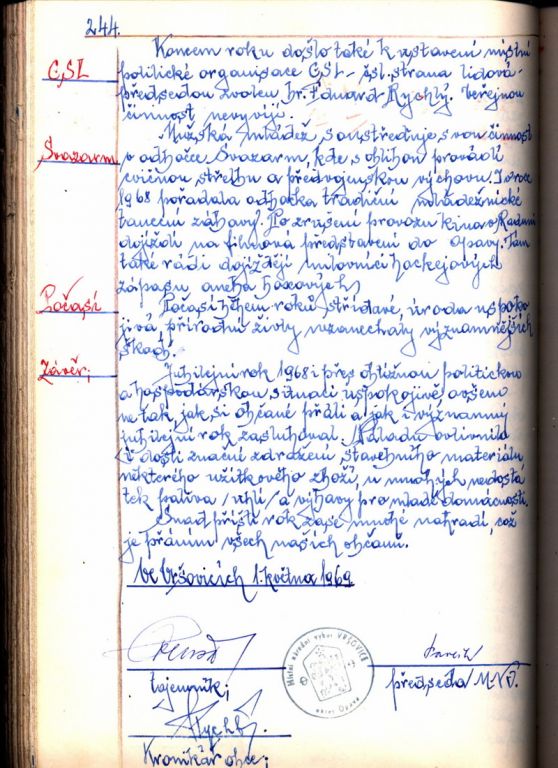 244.
Koncem roku došlo také k ustavení místní
ČSL politické organisace ČSL - čsl. strana lidová
předsedou zvolen br. Eduard Rychlý. Veřejnou
činnost nevyvíjí.
Mužská mládež, soustřeďuje svou činnost
Svazarm v odbočce Svazarm, kde s oblibou provádí
cvičnou střelbu a předvojenskou výchovu. I v roce
1968 pořádala odbočka tradiční mládežnické
taneční zábavy. Po zrušení provozu kina v Raduni
dojíždí na filmová představení do Opavy. Tam
také rádi dojíždějí milovníci hockejových
zápasů anebo boxových.
Počasí Počasí během roku střídavé, úroda uspoko
jivá přírodní živly nezanechaly významnějších
škod.
Závěr: Jubilejní rok 1968 i přes obtížnou politickou
a hospodářskou situaci uspokojivě, ovšem
ne tak, jak si občané přáli a jak i významný
jubilejní rok zasluhoval. Náladu ovlivnilo
i dosti značné zdražení stavebního materiálu,
některého užitkového zboží, u mnohých nedosta
tek paliva /uhlí/ a výbavy pro mladé domácnosti.
Snad příští rok zase mnohé nahradí, což
je přáním všech našich občanů.
Ve Vršovicích 1. května 1969
Místní národní výbor VRŠOVICE
okres Opava
tajemník: předseda MNV.
Rychlý
Kronikář obce: